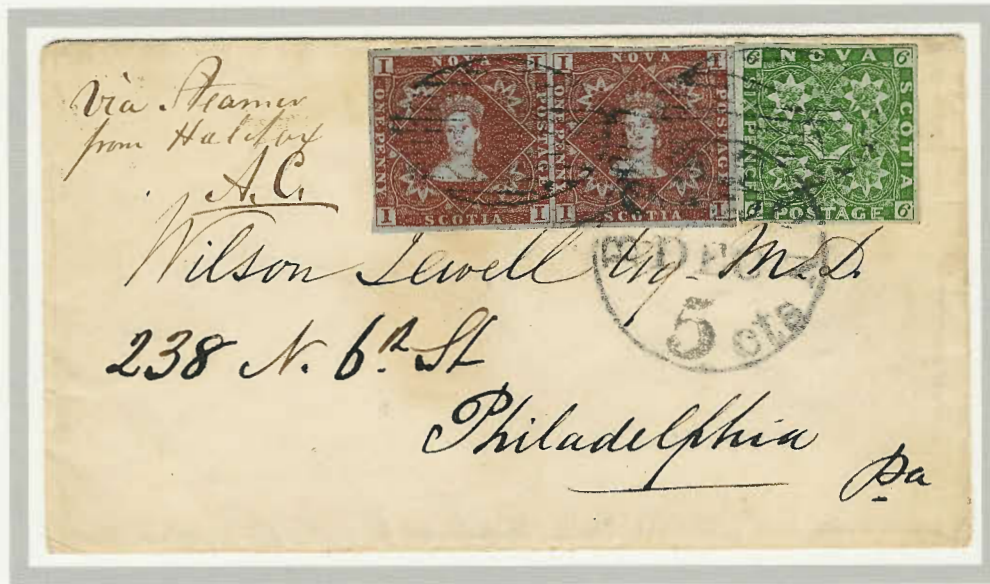 via Steamer
from Halifax
A.C.
1 NOVA 1 ONE PENNY POSTAGE 1 SCOTIA 1
1 NOVA 1 ONE PENNY POSTAGE 1 SCOTIA 1
6d NOVA 6d SCOTIA 6d POSTAGE 6d
Wilson Jewell Esq. M.D.
DEC
5 cts
238 N. 6th St
Philadelphia
Pa